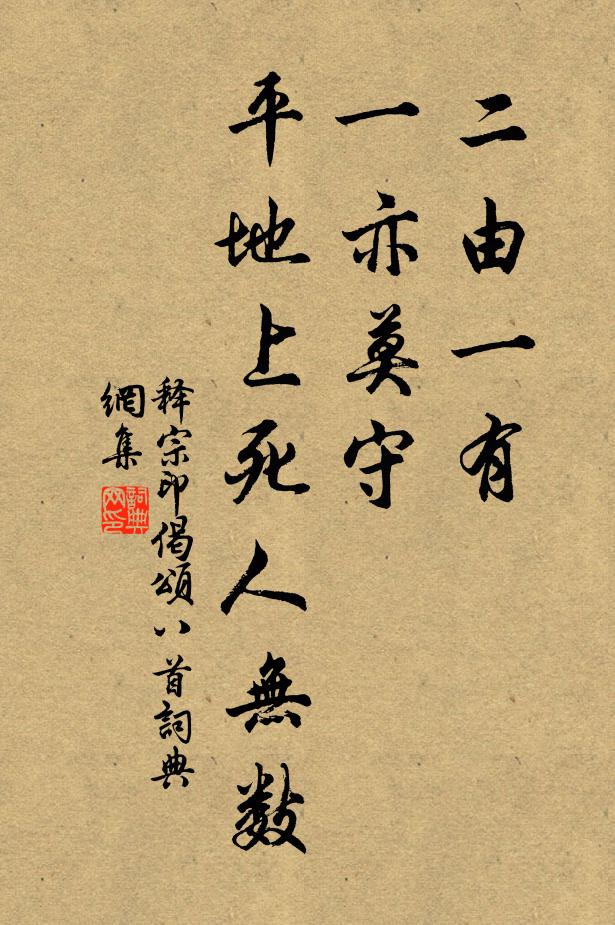 二由一有
一亦莫守
平地上死人無數
释宗印偈頌八首詞典
網集
詞典
網印